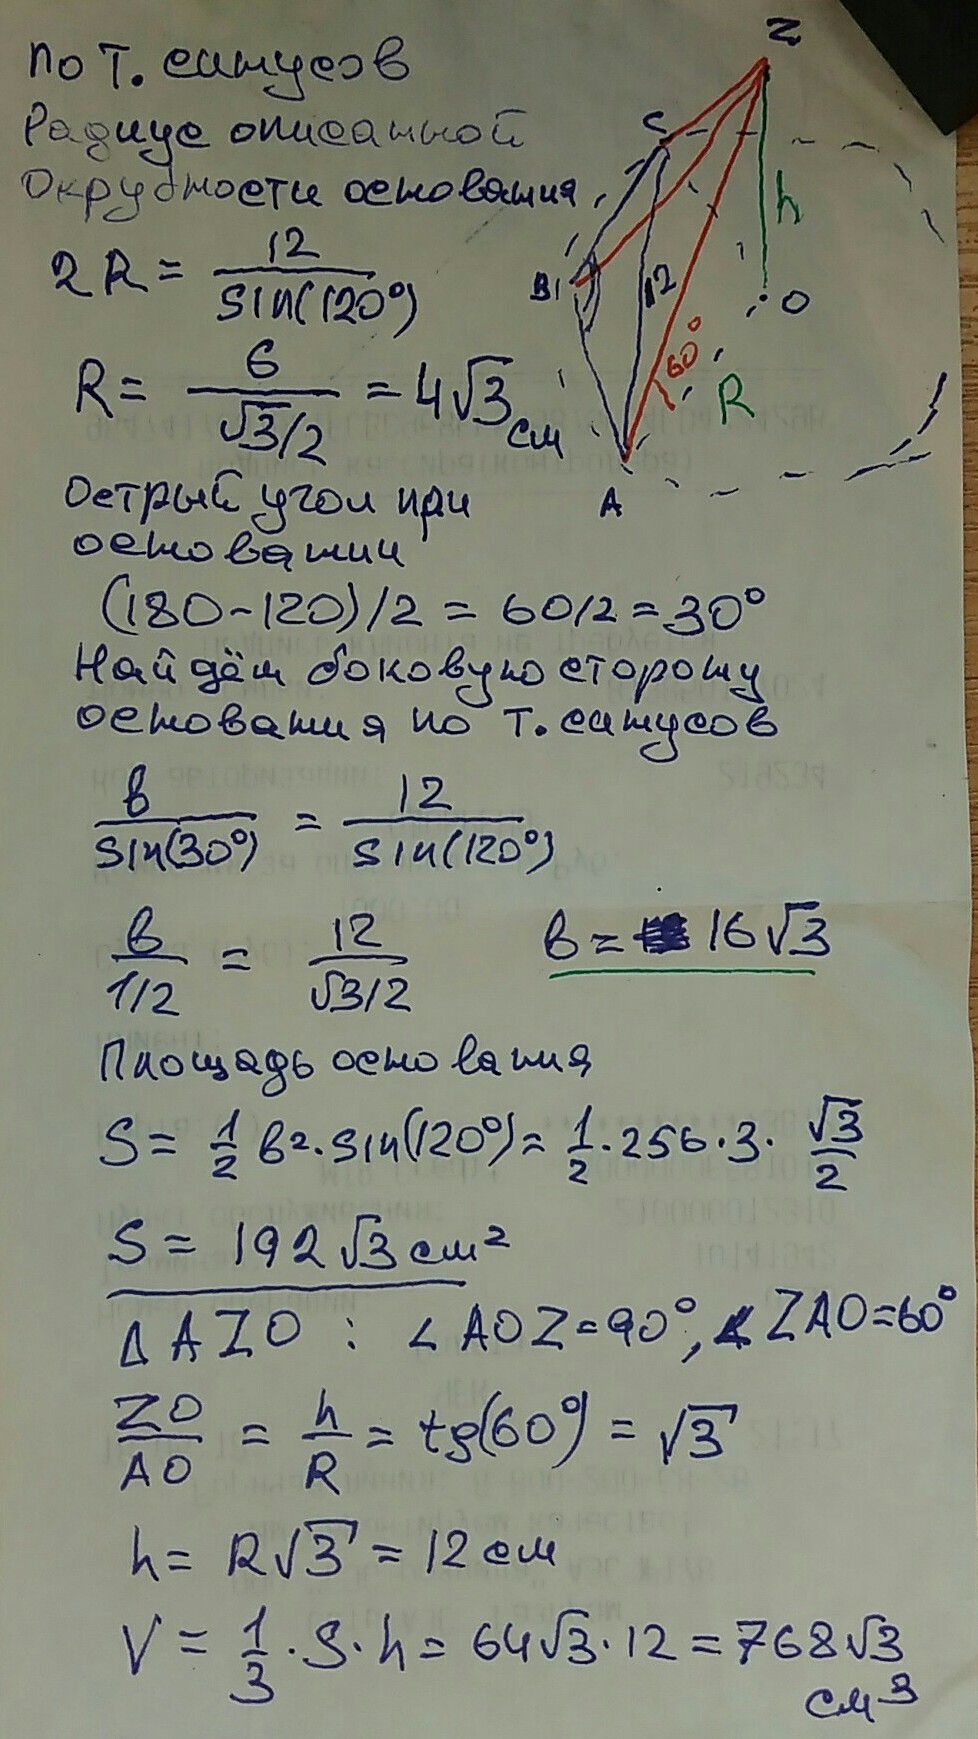 по т. синусов
Радиус описанной
окружности основания
2R = 12/sin(120°)
R = 6/(√3/2) = 4√3 см
Z
C
h
B
12
O
60°
R
A
Острый угол при
основании
(180-120)/2 = 60/2 = 30°
Найдём боковую сторону
основания по т. синусов
в/sin(30°) = 12/sin(120°)
в/(1/2) = 12/(√3/2) в = 16√3
Площадь основания
S = 1/2 в²·sin(120°) = 1/2·256·3·√3/2
S = 192√3 см²
Δ AZO : ∠AOZ=90°, ∠ZAO=60°
ZO/AO = h/R = tg(60°) = √3
h = R√3 = 12 см
V = 1/3·S·h = 64√3·12 = 768√3
см³